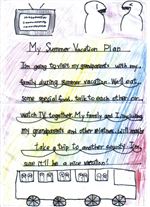 My Summer Vacation Plan
I'm going to visit my grandparents with my
family during summer vacation. We'll eat
some special food, talk to each other or
watch TV together. My family and I including
my grandparents and other relatives will maybe
take a trip to another county. I'm
sure it'll be a nice vacation!